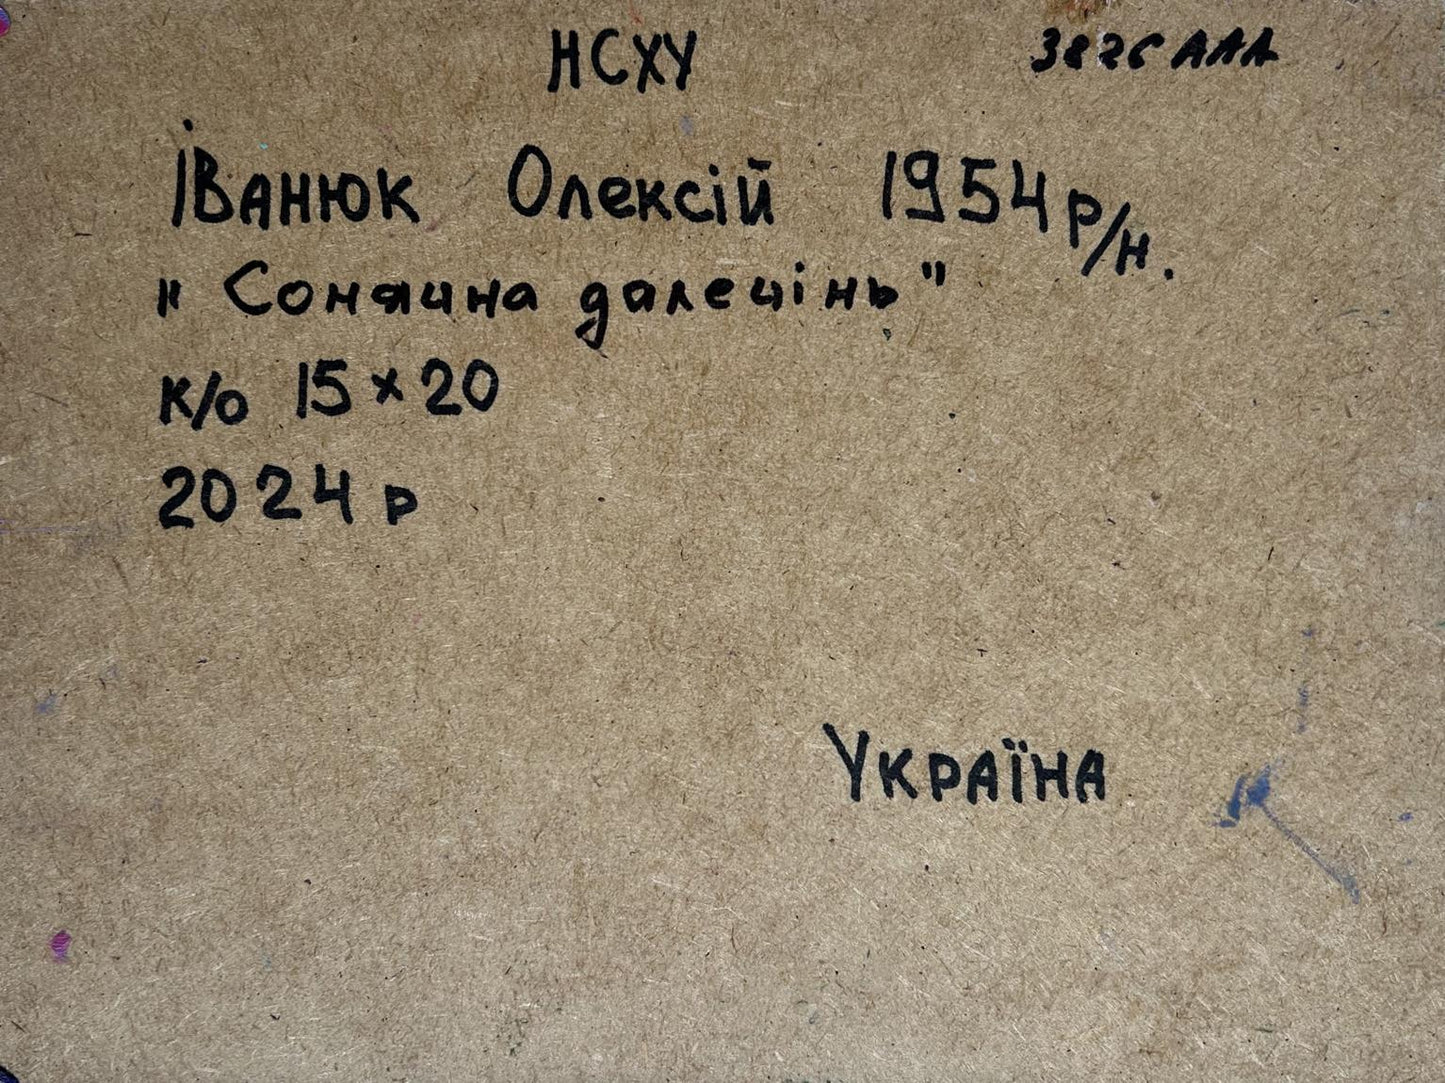 НСХУ 3826 ААА
Іванюк Олексій 1954 р/н.
" Сонячна далечінь "
к/о 15 × 20
2024 р
Україна